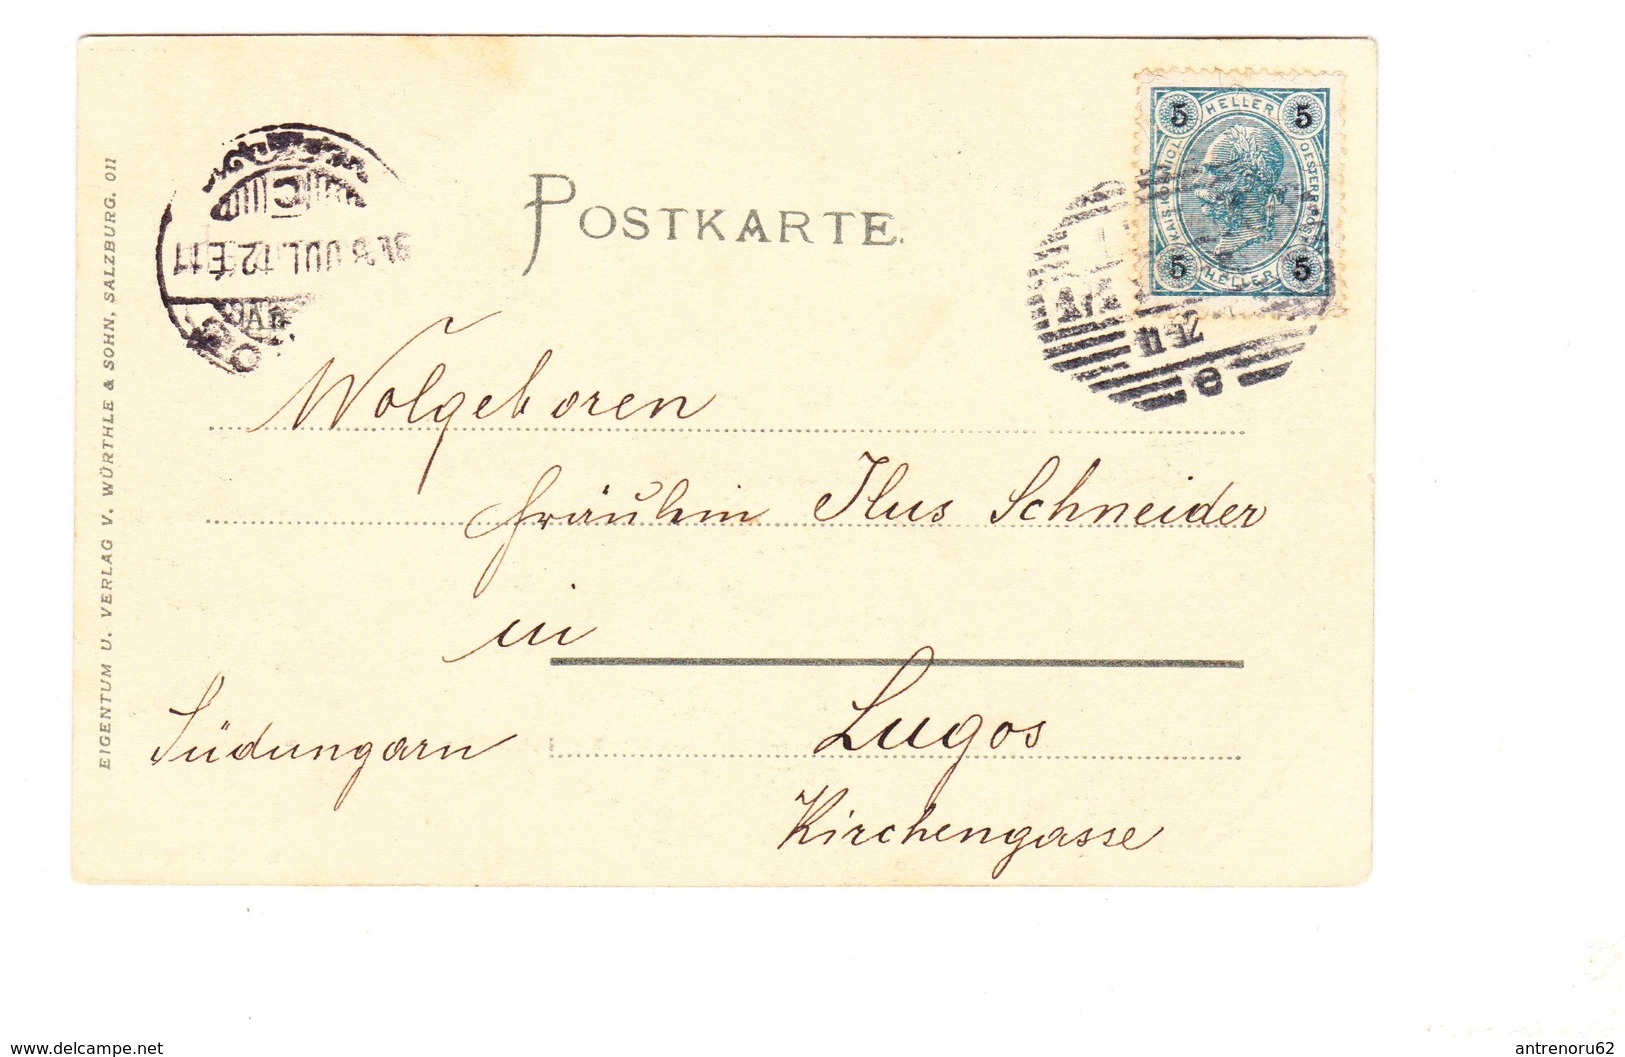 POSTKARTE.
5 HELLER 5
5 HELLER 5
Wolgeboren
Fräulein Ilus Schneider
in
Südungarn Lugos
Kirchengasse
EIGENTUM U. VERLAG V. WÜRTHLE & SOHN, SALZBURG. 011
www.delcampe.net
antrenoru62